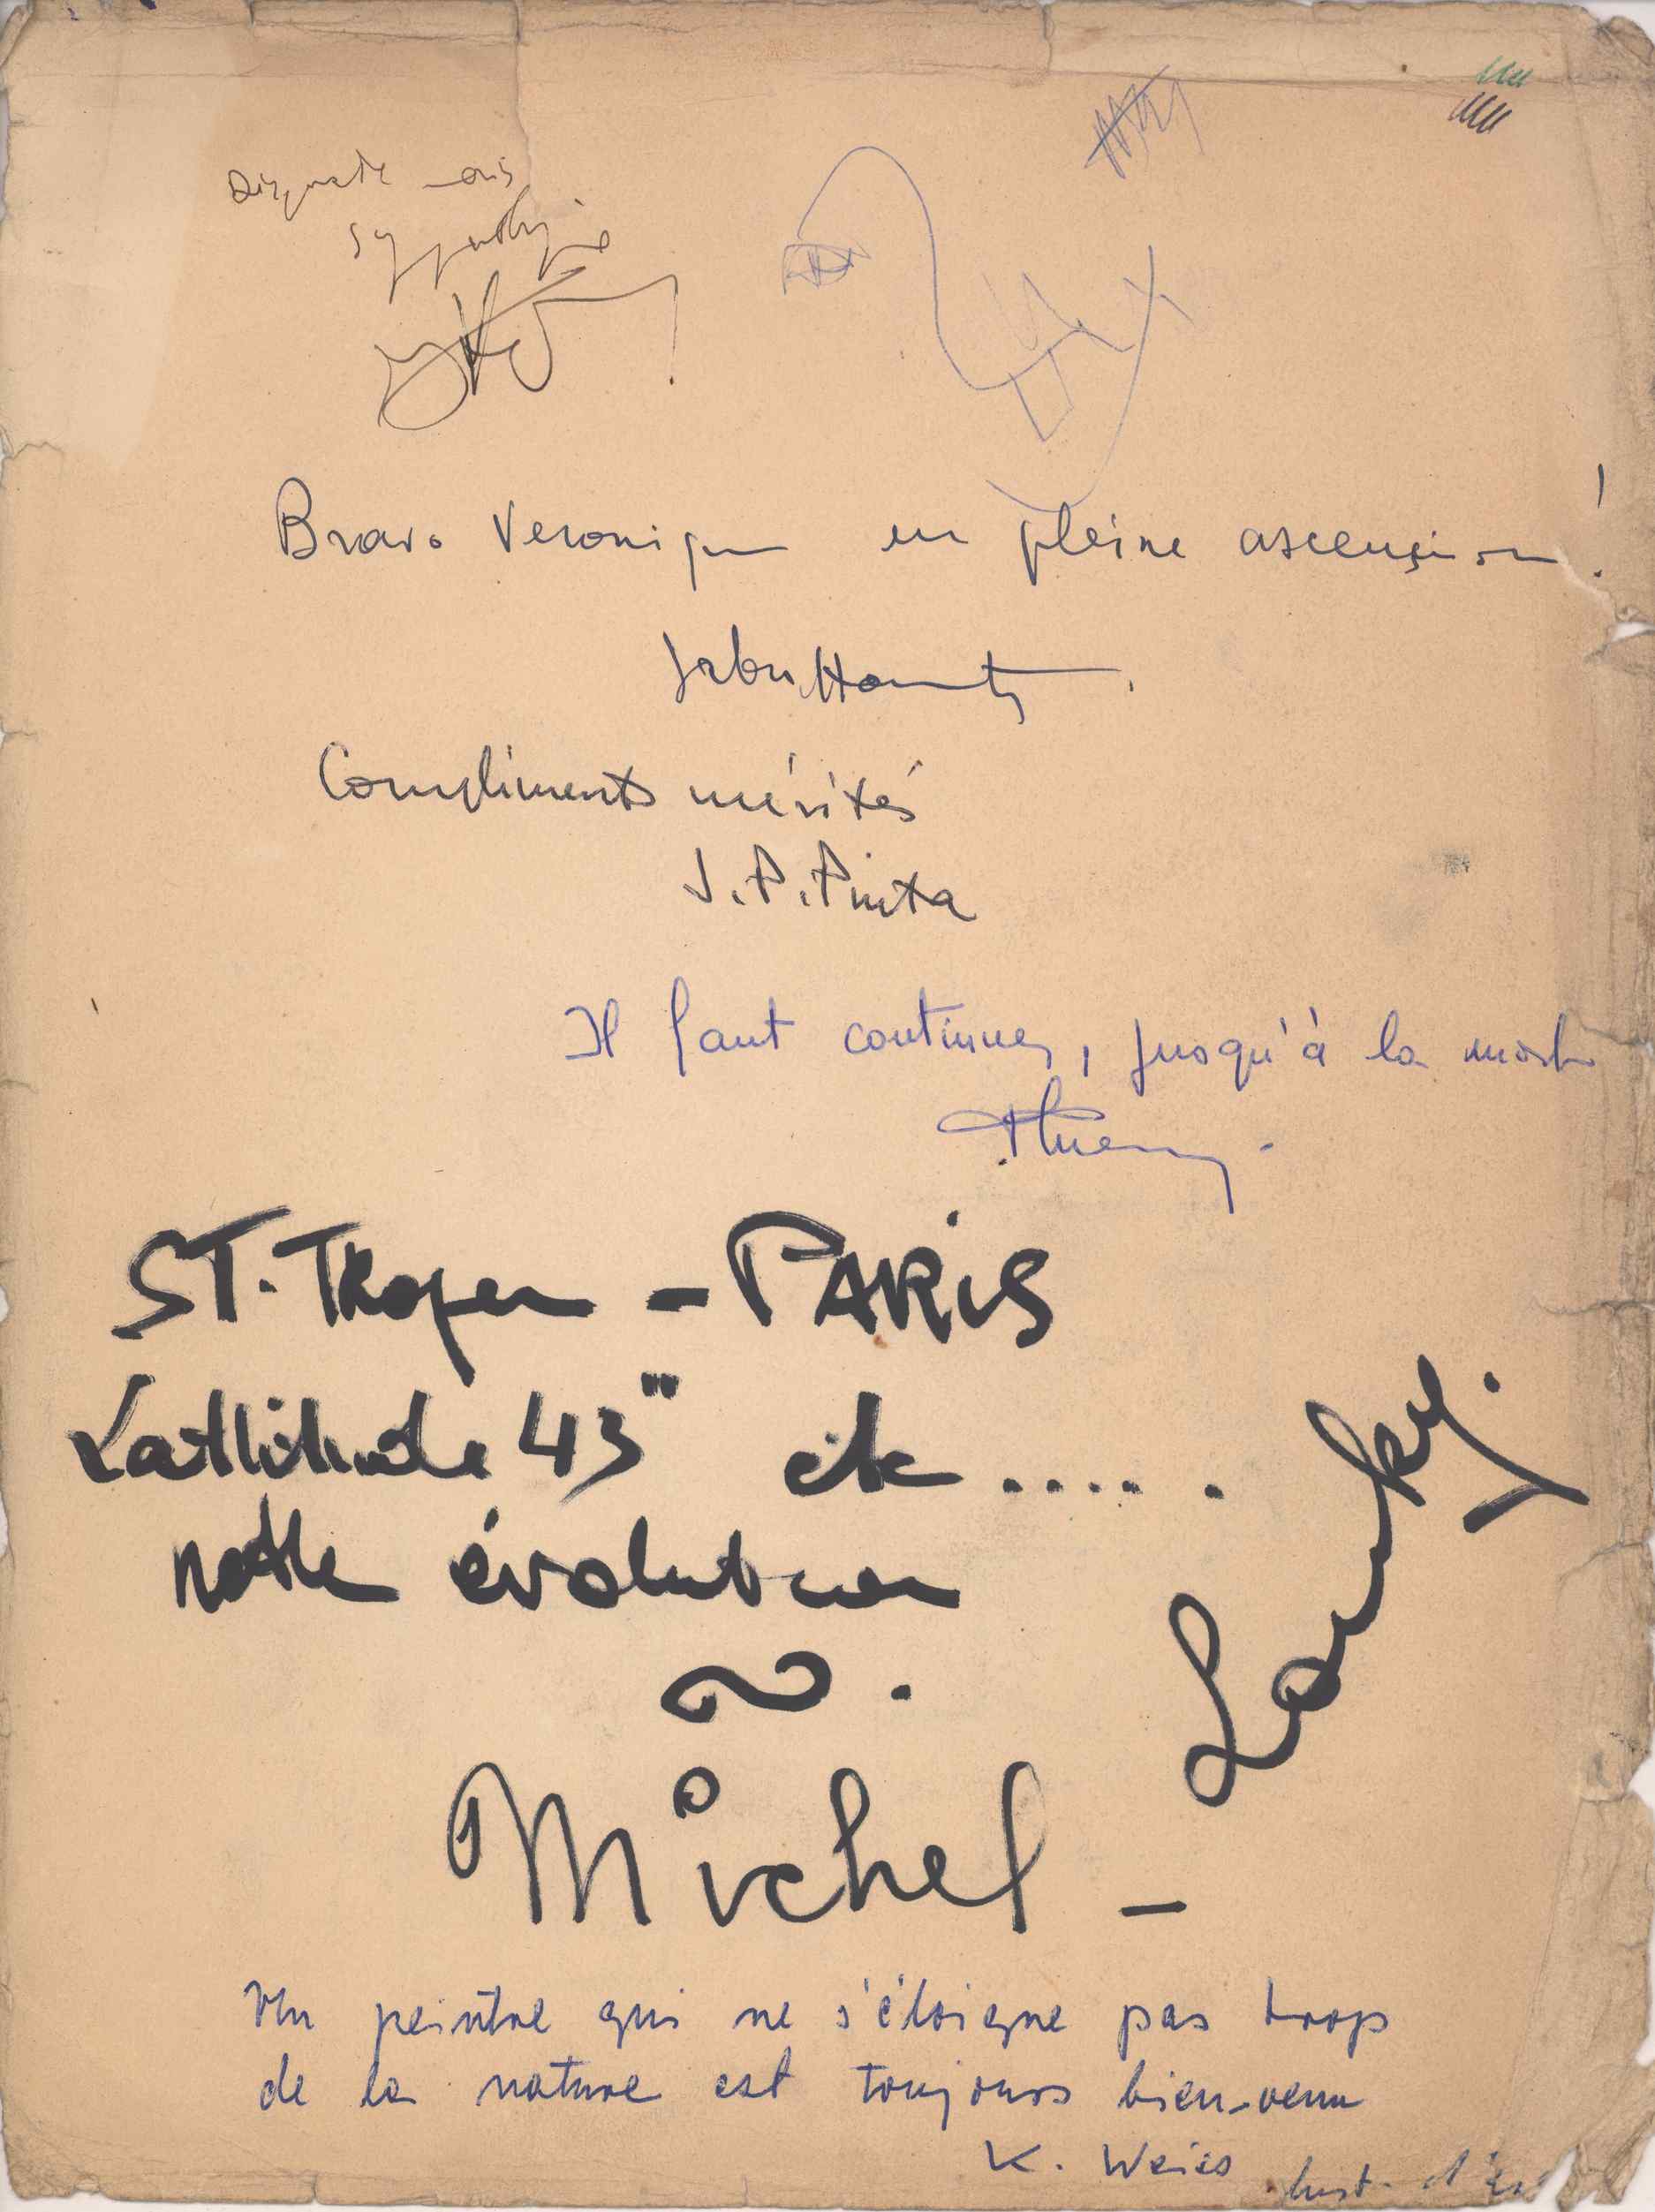 mais
sympathique
Bravo Veronique en pleine ascension !
Compliments mérités
J.P. Pinta
Il faut continuer, jusqu'à la mort
Thierry.
ST. Tropez - PARIS
Lattitude 43" etc ......
notre évolution
Lansky.
Michel -
Un peintre qui ne s'éloigne pas trop
de la nature est toujours bien-venu
K. Weiss